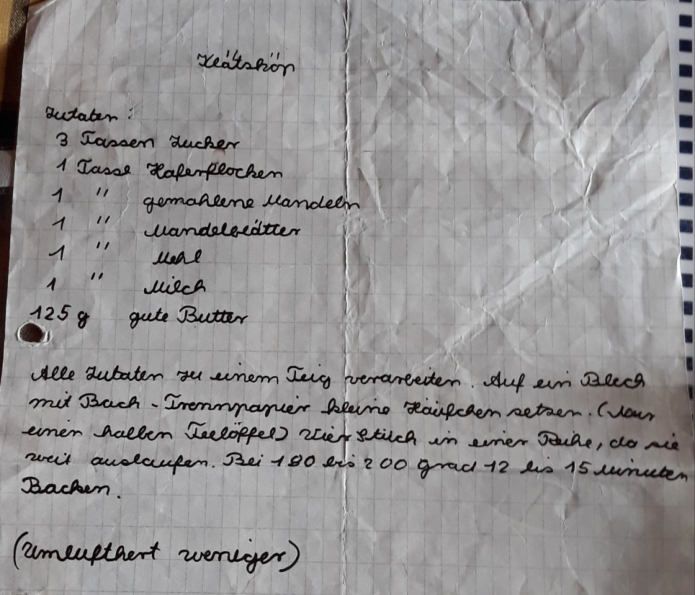 Zutaten:
3 Tassen Zucker
1 Tasse Haferflocken
1 " gemahlene Mandeln
1 " Mandelblätter
1 " Mehl
1 " Milch
125 g gute Butter
Alle Zutaten zu einem Teig verarbeiten. Auf ein Blech
mit Back-Trennpapier kleine Häufchen setzen. (Nur
einen halben Teelöffel) Vier Stück in einer Reihe, da sie
weit auslaufen. Bei 190 bis 200 grad 12 bis 15 Minuten
Backen.
(Umlufthert weniger)